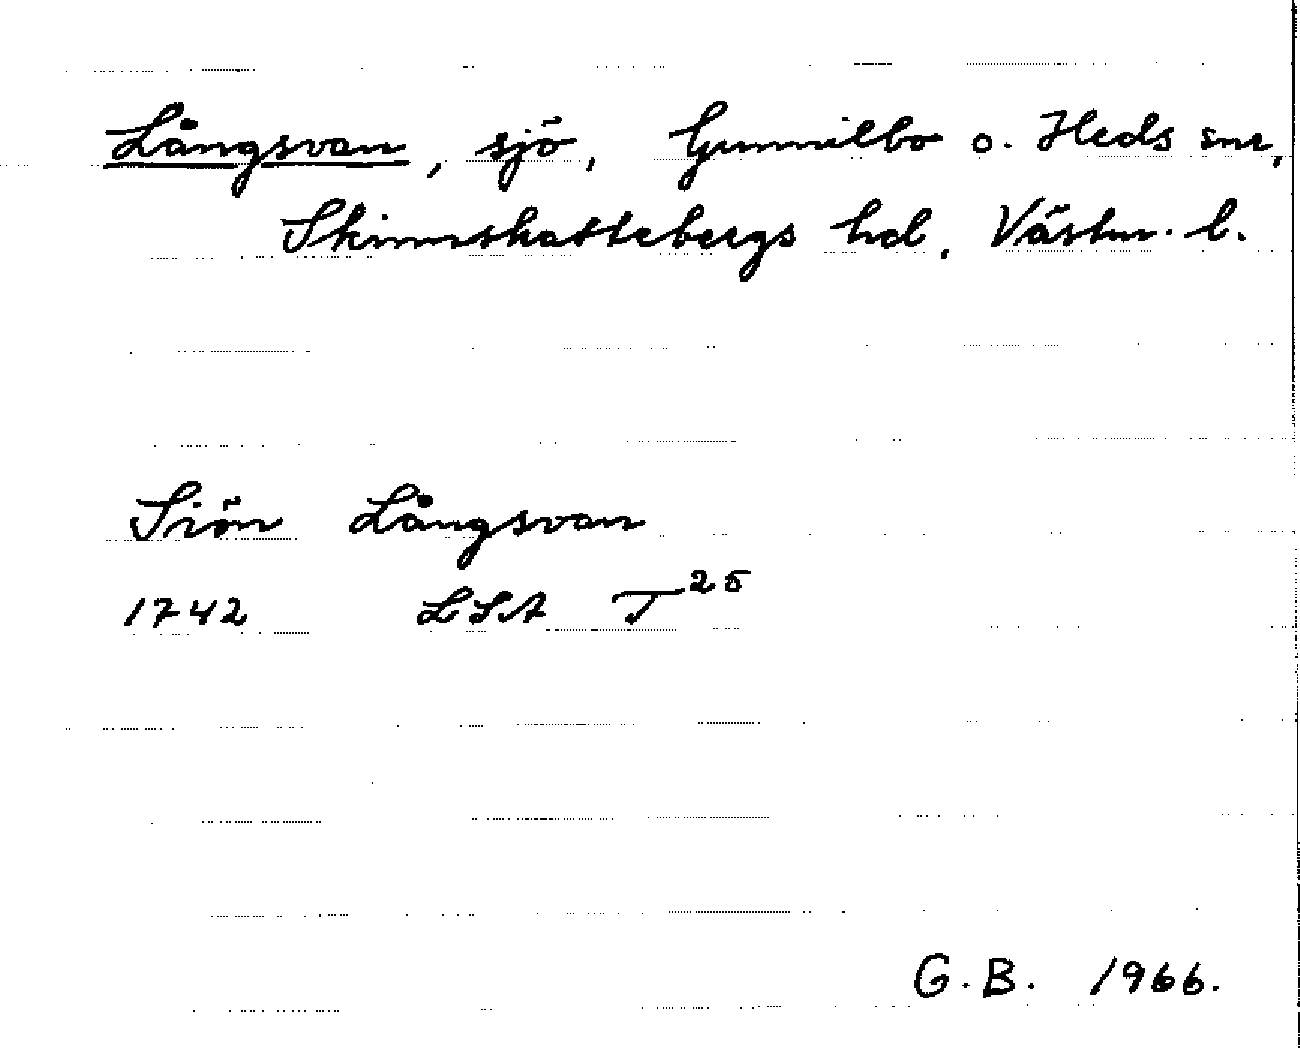 Långsvan, sjö, Gunnilbo o. Heds snr,
Skinnskattebergs hd, Västm. l.
Siön Långsvan
1742 LSA T25
G.B. 1966.